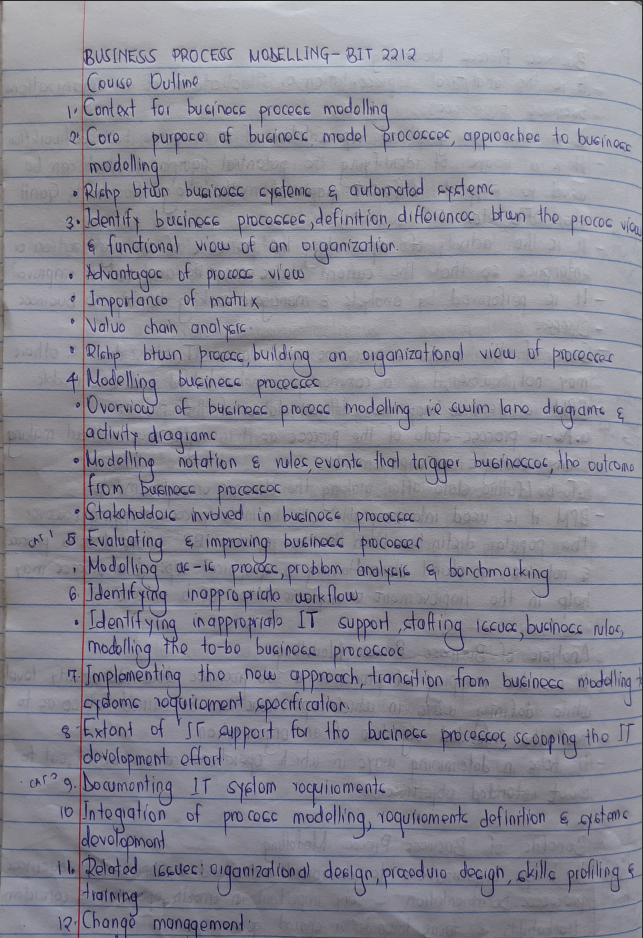 BUSINESS PROCESS MODELLING - BIT 2212
Course Outline
1. Context for business process modelling
2. Core purpose of business model processes, approaches to business
modelling
• Rlshp btwn business systems & automated systems
3. Identify business processes, definition, differences btwn the process view
& functional view of an organization.
• Advantages of process view
• Importance of matrix
• Value chain analysis.
• Rlshp btwn process, building an organizational view of processes
4 Modelling business processes
• Overview of business process modelling i.e swim lane diagrams &
activity diagrams
• Modelling notation & rules, events that trigger businesses, the outcome
from business processes
• Stakeholders involved in business processes
CAT 1 5 Evaluating & improving business processes
• Modelling as-is process, problem analysis & benchmarking
6. Identifying inappropriate workflow
• Identifying inappropriate IT support, staffing issues, business rules,
modelling the to-be business processes
7. Implementing the new approach, transition from business modelling to
systems requirement specification.
8. Extent of IT support for the business processes, scooping the IT
development effort
CAT 2 9. Documenting IT system requirements
10 Integration of process modelling, requirements definition & systems
development
11. Related issues: organizational design, procedure design, skills profiling &
training
12. Change management.